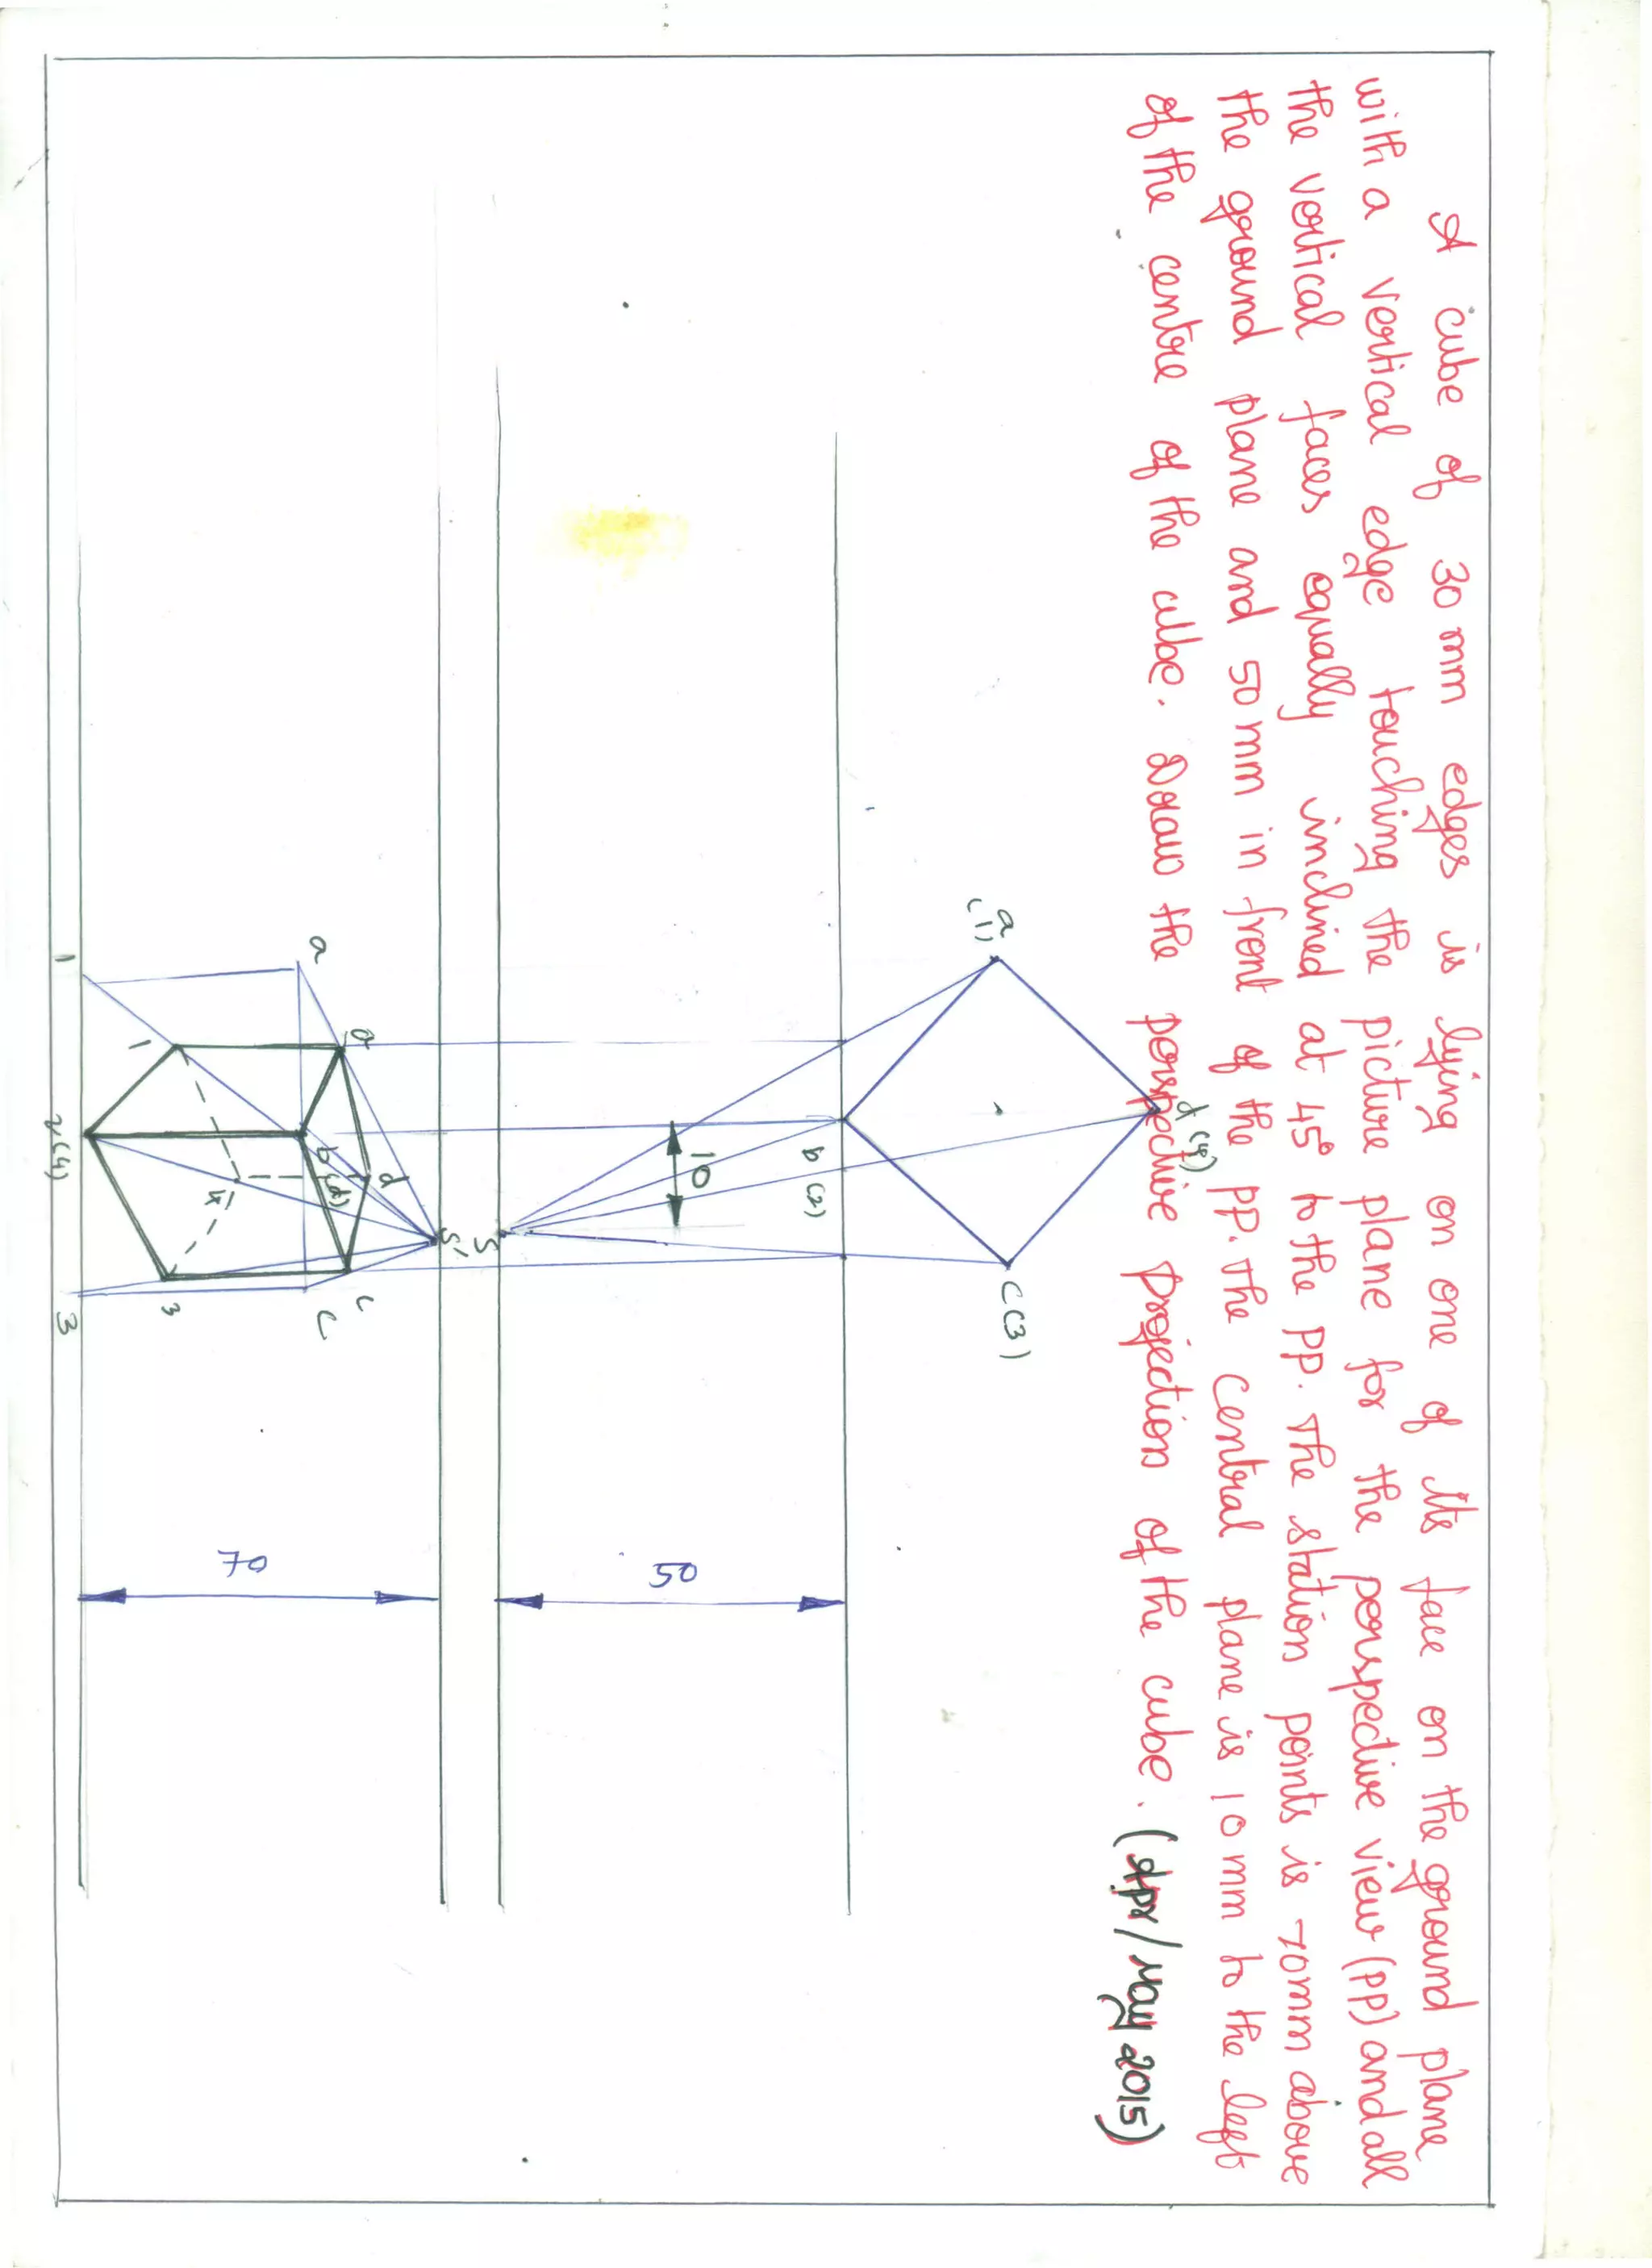 A cube of 30 mm edges is lying on one of its face on the ground plane
with a vertical edge touching the picture plane for the perspective view (PP) and all
the vertical faces equally inclined at 45° to the PP. The station points is 70mm above
the ground plane and 50 mm in front of the PP. The central plane is 10 mm to the left
of the centre of the cube. Draw the perspective projection of the cube. (Apr/May 2015)
d (4)
a
(1)
C(3)
b (2)
10
50
S
S'
a
d
b(d)
c
C
a
1
4
3
70
1
2(4)
3